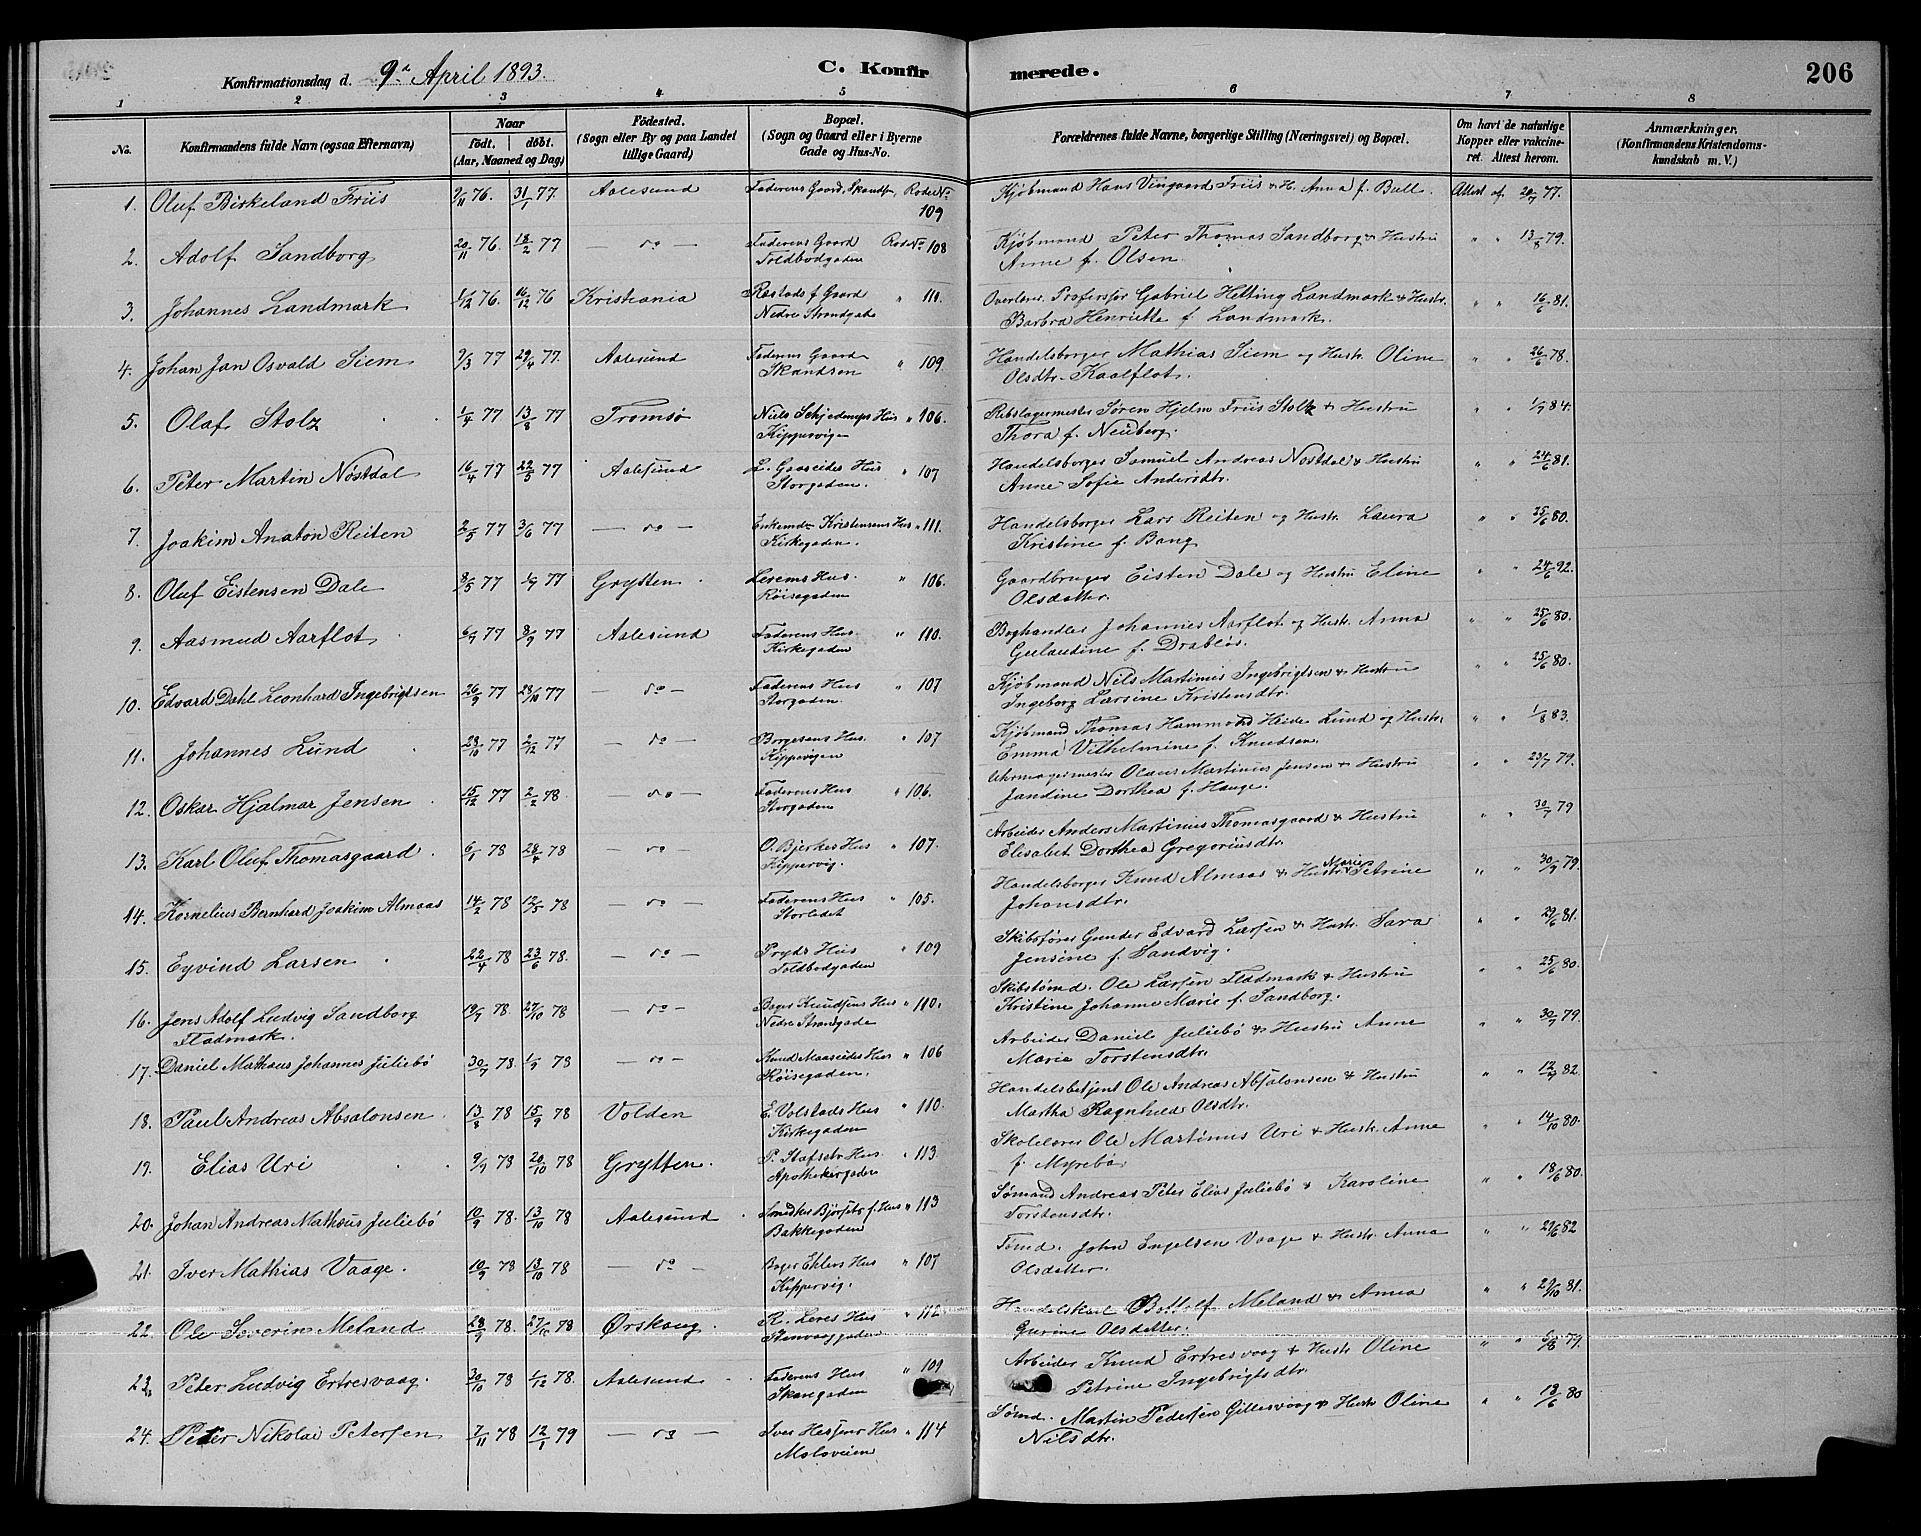 Konfirmationsdag d. 9de April 1893. C. Konfirmerede. 206
1 2 3 4 5 6 7 8
No. Konfirmandens fulde Navn (ogsaa Efternavn) Naar født. døbt. (Aar, Maaned og Dag) Fødested. (Sogn eller By og paa Landet tillige Gaard) Bopæl. (Sogn og Gaard eller i Byerne Gade og Hus-No. Forældrenes fulde Navne, borgerlige Stilling (Næringsvei) og Bopæl. Om havt de naturlige Kopper eller vakcineret. Attest herom. Anmærkninger. (Konfirmandens Kristendomskundskab m. V.)
1. Oluf Birkeland Friis 2/11 76. 31/1 77. Aalesund Faderens Gaard, Rode No 109 Kjøbmand Hans Vingaard Friis & H. Anna f. Bull. Attest af 20/7 77.
2. Adolf Sandborg 20/11 76. 18/2 77 — do — Faderens Gaard Toldbodgaden Rode No 108 Kjøbmand Peter Thomas Sandborg & Hustru Anne f. Olsen. " " 13/8 79.
3. Johannes Landmark 1/12 76. 16/12 76 Kristiania Gaard Nedre Strandgade " 110. Professor Gabriel Hetting Landmark & Hustr. Barbra Henriette f. Landmark. " " 16/6 81.
4. Johan Jan Osvald Siem 9/3 77 29/4 77. Aalesund Faderens Gaard Skandsen " 109. Handelsborger Mathias Siem og Hustr. Oline Olsdtr. Kaalflot. " " 26/6 78.
5. Olaf Stolz 1/4 77 13/8 77 Tromsø Niels Hus Kippervigen " 106. Rebslagermester Søren Hjelm Friis Stolz & Hustru Thora f. Neuberg. " " 1/9 84.
6. Peter Martin Nøstdal 16/4 77 22/5 77 Aalesund L. Gaaseides Hus Storgaden. " 107 Handelsborger Samuel Andreas Nøstdal & Hustru Anne Sofie Andersdtr. " " 24/6 81.
7. Joakim Anaton Reiten 2/5 77 3/6 77 — do — Kristensens Hus Kirkegaden. " 111. Handelsborger Lars Reiten og Hustr. Laura Kristine f. Bang " " 25/6 80.
8. Oluf Eistensen Dale 8/5 77 77 Grytten Hus. Røisegaden " 106. Gaardbruger Eisten Dale og Hustru Eline Olsdatter. " " 24/6 92.
9. Aasmud Aarflot 77 8/9 77 Aalesund Faderens Hus. Kirkegaden " 110. Boghandler Johannes Aarflot og Hustr. Anna f. Drabløs. " " 25/6 80.
10. Edvard Dahl Leonhard Ingebrigtsen 26/9 77 28/10 77 — do — Faderens Hus Storgaden. " 107 Kjøbmand Nils Martinus Ingebrigtsen & Hustru Ingeborg Larsine Kristensdtr. " " 25/6 80.
11. Johannes Lund 23/10 77 2/12 77 — do — Hus. Kippervigen " 107 Kjøbmand Thomas Hammond Heide Lund og Hustr. Emma Vilhelmine f. Knudsen. " " 1/8 83.
12. Oskar Hjalmar Jensen 15/12 77 2/2 78. — do — Faderens Hus Storgaden " 106. Uhrmagermester Olaus Martinus Jensen & Hustru Jandine Dorthea f. Hauge. " " 23/7 79.
13. Karl Oluf Thomasgaard 6/1 78 28/4 78 — do — O. Bjerkes Hus Kippervig. " 107. Arbeider Anders Martinus Thomasgaard & Hustru Elisabet Dorthea Gregoriusdtr. " " 30/7 79
14. Kornelius Bernhard Joakim Almaas 14/2 78 12/5 78 — do — Faderens Hus " 105. Handelsborger Knud Almaas & Hustr. Marie Petrine Johansdtr. " " 30/9 79.
15. Eyvind Larsen 22/4 78 23/6 78. — do — Pryds Hus Toldbodgaden " 109 Skibsfører Gunder Edvard Larsen & Hustr. Sara Jensine f. Sandvig. " " 29/6 81.
16. Jens Adolf Ludvig Sandborg Fladmark. 19/7 78 27/10 78 — do — Bager Knudsens Hus Nedre Strandgade " 110. Skibstømd. Ole Larsen Fladmark & Hustru Kristine Johanne Marie f. Sandborg. " " 25/6 80.
17. Daniel Mathæus Johannes Juliebø 30/7 78 1/9 78 — do — Knud Maaseides Hus Røisegaden. " 106 Arbeider Daniel Juliebø & Hustru Anne Marie Torstensdtr. " " 30/7 79.
18. Paul Andreas Absalonsen 13/8 78 15/9 78 Volden E. Volstads Hus Kirkegaden " 110. Handelsbetjent Ole Andreas Absalonsen & Hustru Martha Ragnhild Olsdtr. " " 12/7 82
19. Elias Uri 9/9 78 20/10 78 Grytten. P. Hus. Apothekergaden " 113. Skolelærer Ole Martinus Uri & Hustr. Anne f. Myrebø. " " 14/10 80.
20. Johan Andreas Mathæus Juliebø 10/9 78. 13/10 78 Aalesund Hus Bakkegaden " 113 Sømand Andreas Peter Elias Juliebø & Karoline Torstensdtr. " " 18/6 80.
21. Iver Mathias Vaage. 10/9 78 13/10 78 — do — Bager Ehlers Hus Kippervig. " 107 Tømd. John Engelsen Vaage & Hustr. Anna Olsdatter. " " 29/6 82
22. Ole Severin Meland 23/9 78. 27/10 78 Ørskoug. Hus " 112. Handelskarl Bottolf Meland & Anna Gurine Olsdatter. " " 29/10 81.
23. Peter Ludvig Ertresvaag. 30/10 78 1/12 78. Aalesund Faderens Hus " 109 Arbeider Knud Ertresvaag & Hustr. Oline Petrine Ingebrigtsdtr. " " 79.
24. Peter Nikolai Petersen 7/11 78 12/1 79 — do — Iver Hessens Hus Moloveien " 114 Sømd. Martin Pedersen Gillesvaag & Hustr. Oline Nilsdtr. " " 13/6 80